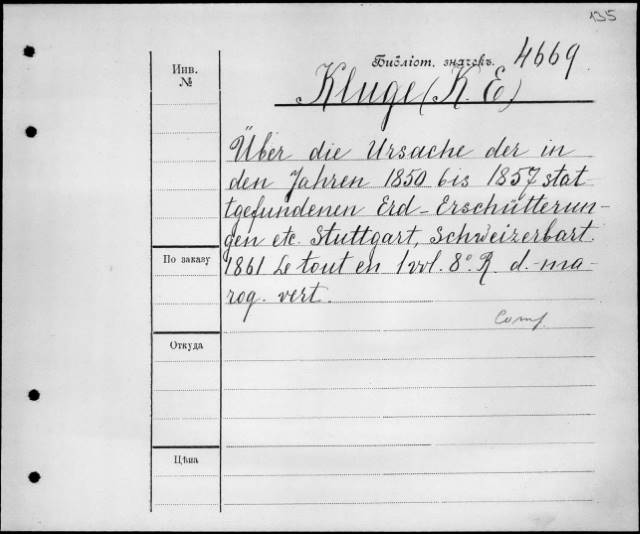 135
Библіот. значекъ. 4669
Инв.
№
Kluge (K. E)
Über die Ursache der in
den Jahren 1850 bis 1857 stat-
tgefundenen Erd-Erschütterun-
gen etc. Stuttgart, Schweizerbart.
По заказу
1861 Le tout en 1 vol. 8º. R. d. ma-
rog. vert.
Comp.
Откуда
Цѣна